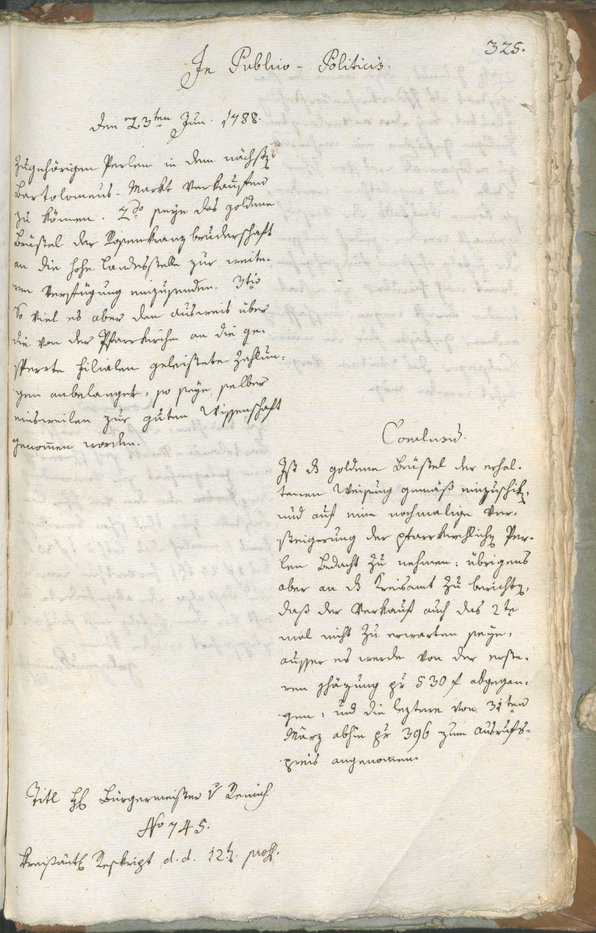 325.
In Publico-Politicis.
den 23ten Jun. 1788.
zugehörigen Perlen in dem nächst
Bartolomeus-Markt verkaufen
zu können. 2do seye das goldene
Brüstel der Rosenkranzbruderschaft
an die hohe Landesstelle zur weite-
ren Verfügung einzusenden. 3tio
So viel es aber den Ausweis über
die von der Pfarrkirche an die ge-
sperrte Filialen geleistete Zahlun-
gen anbelanget, so seye selber
einsweilen zur guten Wissenschaft
genommen worden.
Conclusum.
Ist das goldene Brüstel der erhal-
tenen Weisung gemäß einzuschiken,
und auf eine nochmalige Ver-
steigerung der pfarrkirchlichen Per-
len Bedacht zu nehmen; übrigens
aber an das Kreisamt zu berichten,
daß der Verkauf auch das 2te
mal nicht zu erwarten seye,
ausser es werde von der erste-
ren Schäzung pr 530 f abgegan-
gen, und die leztere vom 31ten
März abhin pr 396 zum Ausrufs-
preis angenommen.
Titl H. Bürgermeister v. Remich
No 745.
Kreisämtl. Reskript d. d. 12t.